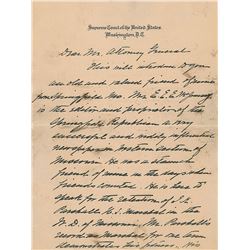 Supreme Court of the United States
Washington, D.C.
Dear Mr. Attorney General
This will introduce to you
an old and valued friend of mine
from Springfield Mo. Mr. E.E.E. McJimsey
is the editor and proprietor of the
Springfield Republican a very
successful and widely influential
newspaper in western section of
Missouri. He was a staunch
friend of mine in the day when
friends counted. He is here to
speak for the retention of J. L.
as Marshal in the
W.D. of Missouri. Mr.
record as Marshal for one term
demonstrates his